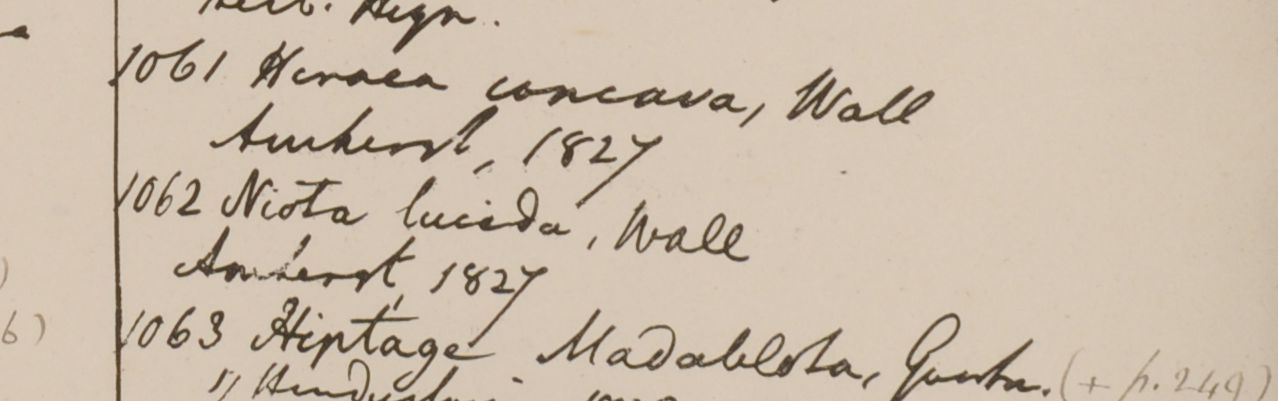 1061 Hiraea concava, Wall
Amherst, 1827
1062 Niota lucida, Wall
Amherst, 1827
1063 Hiptage Madablota, Gaertn. (+ p. 249)